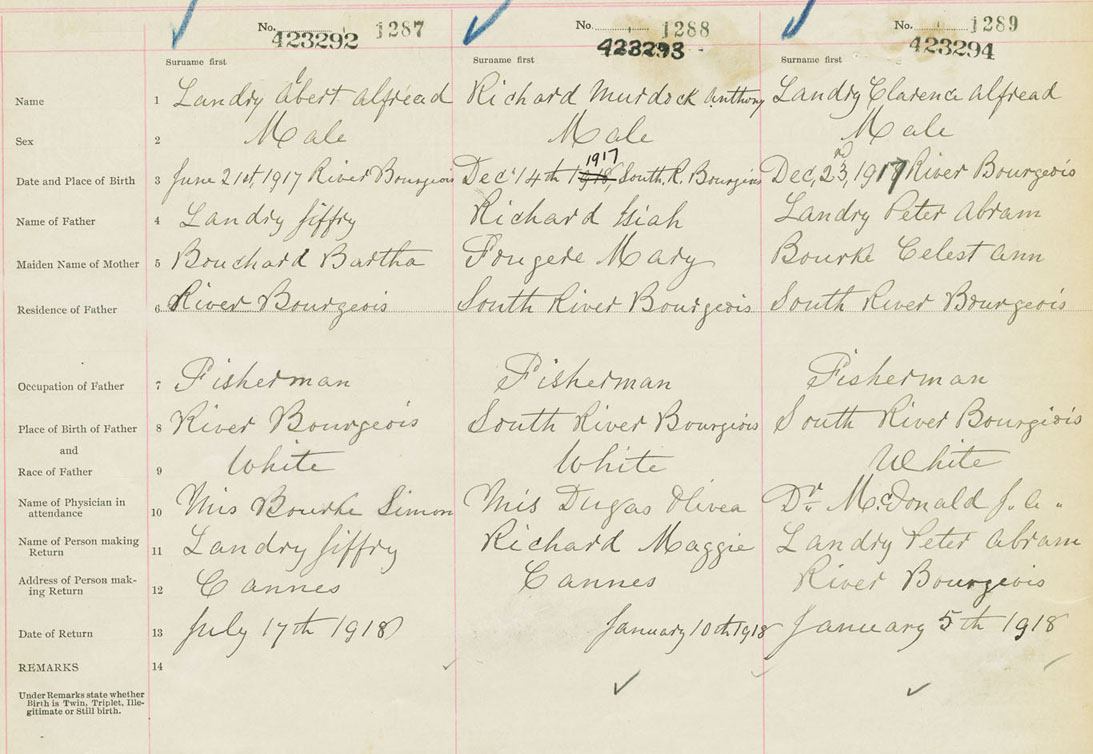 No. 1287 No. 1288 No. 1289
423292 423293 423294
Surname first Surname first Surname first
Name 1 Landry Albert Alfread Richard Murdock Anthony Landry Clarence Alfread
Sex 2 Male Male Male
Date and Place of Birth 3 June 21st, 1917 River Bourgeois Dec 14th 1918, 1917 South, R. Bourgiois Dec, 23rd, 1917 River Bourgeois
Name of Father 4 Landry Jiffry Richard Isiah Landry Peter Abram
Maiden Name of Mother 5 Bouchard Bartha Fougere Mary Bourke Celest Ann
Residence of Father 6 River Bourgeois South River Bourgeois South River Bourgeois
Occupation of Father 7 Fisherman Fisherman Fisherman
Place of Birth of Father 8 River Bourgeois South River Bourgiois South River Bourgiois
and
Race of Father 9 White White White
Name of Physician in
attendance 10 Mis Bourke Simon Mis Dugas Olivea Dr. McDonald J. A.
Name of Person making
Return 11 Landry Jiffry Richard Maggie Landry Peter Abram
Address of Person mak-
ing Return 12 Cannes Cannes River Bourgeois
Date of Return 13 July 17th 1918 January 10th 1918 January 5th 1918
REMARKS 14
Under Remarks state whether
Birth is Twin, Triplet, Ille-
gitimate or Still birth.